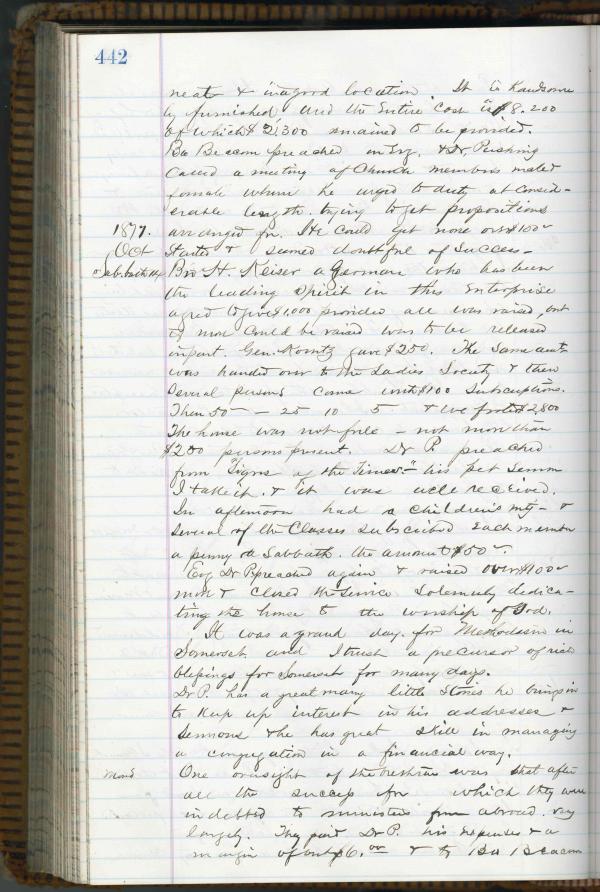 442
neat & in a good location. It is handsome
ly furnished, and the Entire Cost is $8.200
of which $2,300 remained to be provided.
Bro Beacom preached in Evg. & Dr. Pershing
called a meeting of Church members male &
female whom he urged to duty at consid-
erable length. trying to get propositions
1877. arranged for. He could get none over $100
Oct started & seemed doubtful of success -
Sabbath 14 Bro H. Keiser a German who has been
the leading spirit in this Enterprise
agreed to give $1,000 provided all was raised, but
if more could be raised was to be released
in part. Gen. Koontz gave $250. The same amt
was handed over to the Ladies Society & then
several persons came with $100 subscriptions.
Then 50 - 25 10 5 & we footed $2,800
The house was not full - not more than
$200 persons present. Dr P. preached
from "Signs of the Times" - his pet sermon
I take it. & it was well received.
In afternoon had a children's mtg - &
several of the Classes subscribed each member
a penny a Sabbath. the amount $50
Evg Dr P preached again & raised over $100
more & closed the service solemnly dedica-
ting the house to the worship of God.
It was a grand day for Methodism in
Somerset and I trust a precursor of rich
blessings for Somerset for many days.
Dr P. has a great many little stories he brings in
to keep up interest in his addresses &
sermons & he has great skill in managing
a congregation in a financial way.
Mond One oversight of the brethren was that after
all the success for which they were
indebted to ministers from abroad very
largely. They paid Dr P. his expenses & a
margin of $6.00 & to Bro Beacom